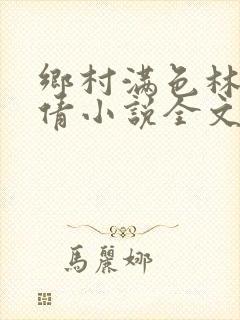 鄉村滿色林
倩小說全文
馬麗娜